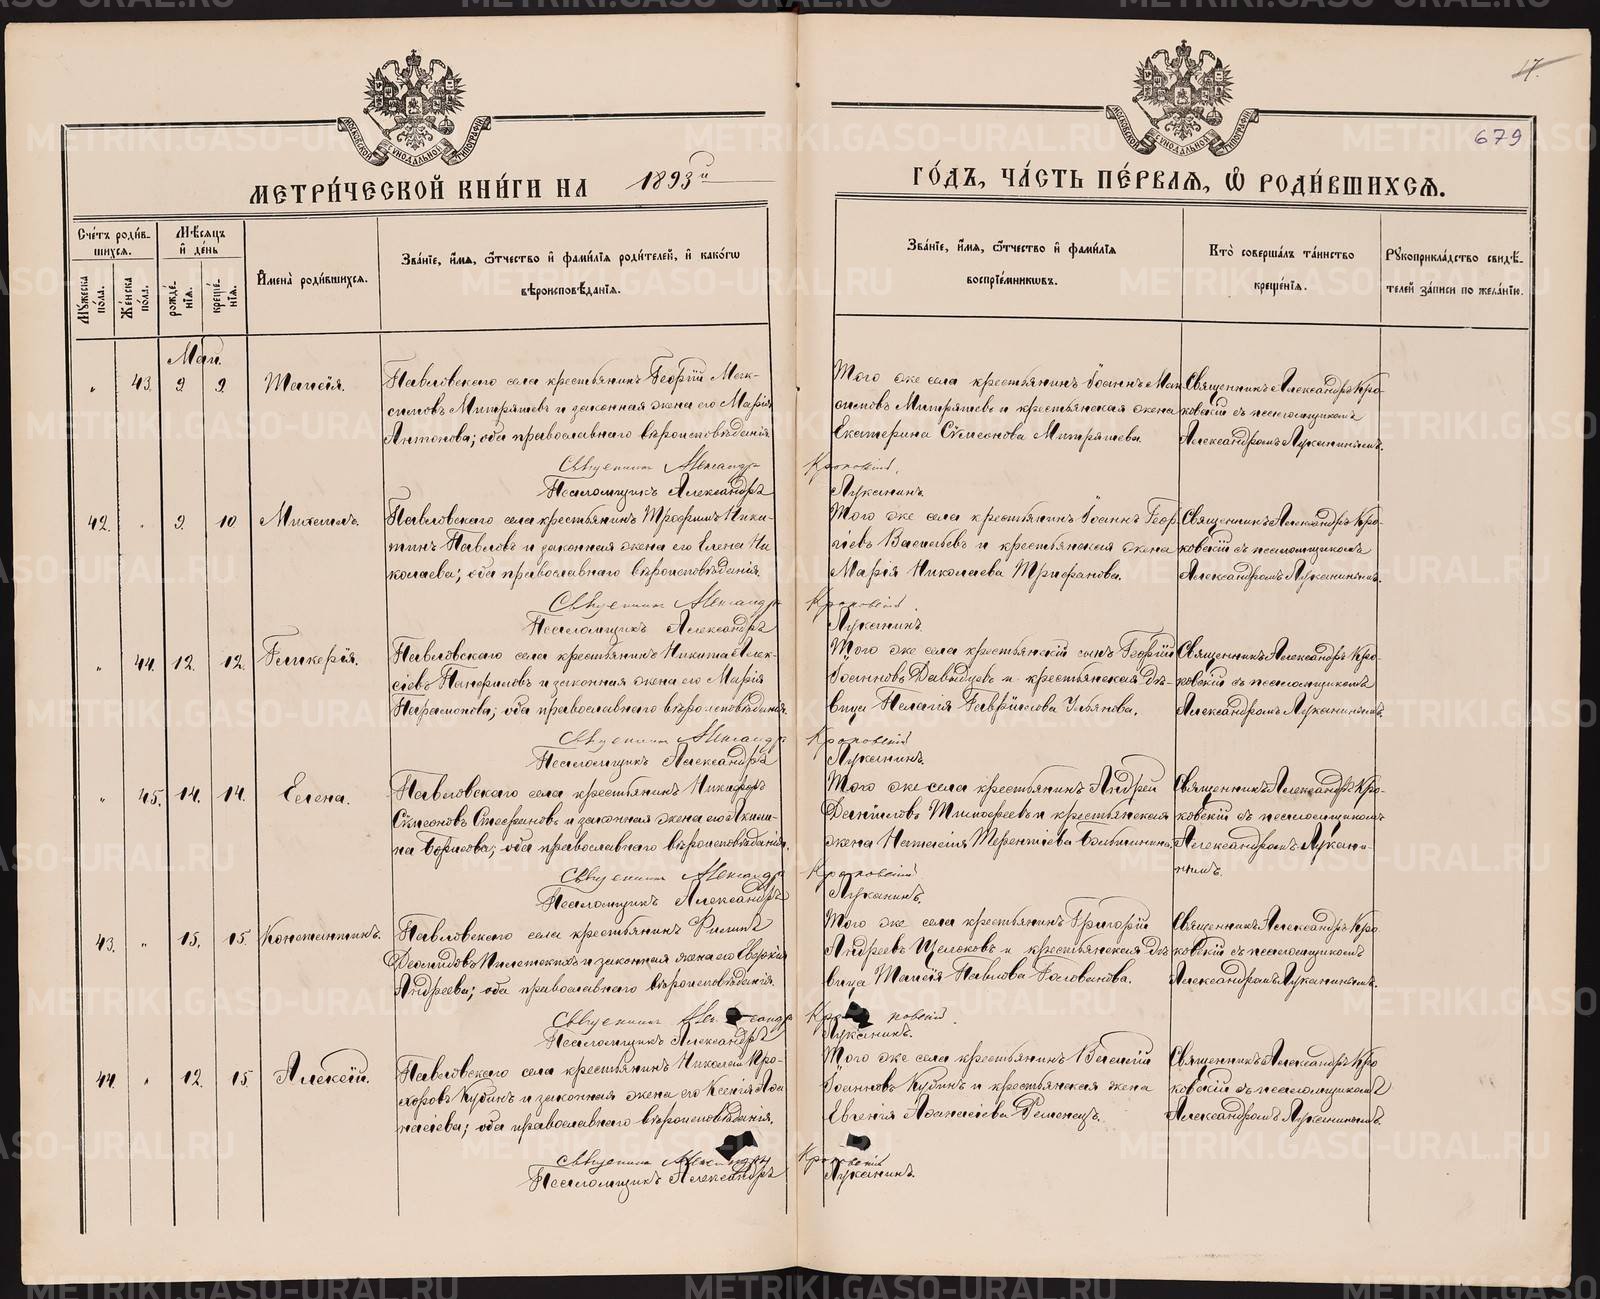 МЕТРИ́ЧЕСКОЙ КНИ́ГИ НА 1893й
ГО́ДЪ, ЧА́СТЬ ПЕ́РВАЯ, Ѽ РОДИ́ВШИХСѦ.
17.
679
Сче́тъ роди́в-
шихся.
Мѣ́сяцъ
и҆ де́нь
Мꙋ́жеска по́ла.
Же́нска по́ла.
рожде́-
нїя.
креще́-
нїя.
И҆мена̀ роди́вшихся.
Зва́нїе, и҆́мя, ѻ҆́тчество и҆ фами́лїя роди́телей, и҆ како́гѡ
вѣроисповѣ́данїя.
Зва́нїе, и҆́мя, ѻ҆́тчество и҆ фами́лїя
воспрїе́мникѡвъ.
Кто̀ соверша́лъ та́инство
креще́нїя.
Рꙋкоприкла́дство свидѣ́-
телей за́писи по жела́нїю.
Май.
" 43. 9 9. Таисія.
Павловскаго села крестьянинъ Георгій Мак-
симовъ Митряшевъ и законная жена его Марія
Антонова; оба православнаго вѣроисповѣданія
Того же села крестьянинъ Іоаннъ Мак
симовъ Митряшевъ и крестьянская жена
Екатерина Сѵмеонова Митряшева
Священникъ Александръ Кро-
ковскій съ псаломщикомъ
Александромъ Луканинымъ.
Священникъ Александръ Кроковскій.
Псаломщикъ Александръ Луканинъ.
42. " 9. 10. Михаилъ.
Павловскаго села крестьянинъ Трофимъ Ники-
тинъ Павловъ и законная жена его Елена Ни
колаева; оба православнаго вѣроисповѣданія.
Того же села крестьянинъ Іоаннъ Геор-
гіевъ Васильевъ и крестьянская жена
Марія Николаева Трифанова.
Священникъ Александръ Кро-
ковскій съ псаломщикомъ
Александромъ Луканинымъ.
Священникъ Александръ Кроковскій.
Псаломщикъ Александръ Луканинъ.
" 44. 12. 12. Гликерія.
Павловскаго села крестьянинъ Никита Алек-
сіевъ Панфиловъ и законная жена его Марія
Парамонова; оба православнаго вѣроисповѣданія.
Того же села крестьянскій сынъ Георгій
Іоанновъ Давыдовъ и крестьянская дѣ-
вица Пелагія Гавріилова Ульянова.
Священникъ Александръ Кро-
ковскій съ псаломщикомъ
Александромъ Луканинымъ.
Священникъ Александръ Кроковскій
Псаломщикъ Александръ Луканинъ.
" 45. 14. 14. Елена.
Павловскаго села крестьянинъ Никифоръ
Сѵмеоновъ Стефановъ и законная жена его Акили-
на Борисова; оба православнаго вѣроисповѣданія.
Того же села крестьянинъ Андрей
Даніиловъ Тимофеевъ и крестьянская
жена Наталія Терентіева
Священникъ Александръ Кро-
ковскій съ псаломщикомъ
Александромъ Лукани-
нымъ.
Священникъ Александръ Кроковскій
Псаломщикъ Александръ Луканинъ.
43. " 15. 15. Константинъ.
Павловскаго села крестьянинъ Филипъ
Деомидовъ и законная жена его
Андреева; оба православнаго вѣроисповѣданія.
Того же села крестьянинъ Григорій
Андреевъ Щелоковъ и крестьянская дѣ
вица Таисія Павлова Голованова.
Священникъ Александръ Кро
ковскій съ псаломщикомъ
Александромъ Луканинымъ.
Священникъ Александръ Кроковскій.
Псаломщикъ Александръ Луканинъ.
44. " 12. 15. Алексій.
Павловскаго села крестьянинъ Николай Про-
хоровъ Кубинъ и законная жена его Ксенія Аѳа
насіева; оба православнаго вѣроисповѣданія.
Того же села крестьянинъ Василій
Іоанновъ Кубинъ и крестьянская жена
Евгенія Аѳанасіева
Священникъ Александръ Кро
ковскій съ псаломщикомъ
Александромъ Луканинымъ.
Священникъ Александръ Кроковскій
Псаломщикъ Александръ Луканинъ.
METRIKI.GASO-URAL.RU